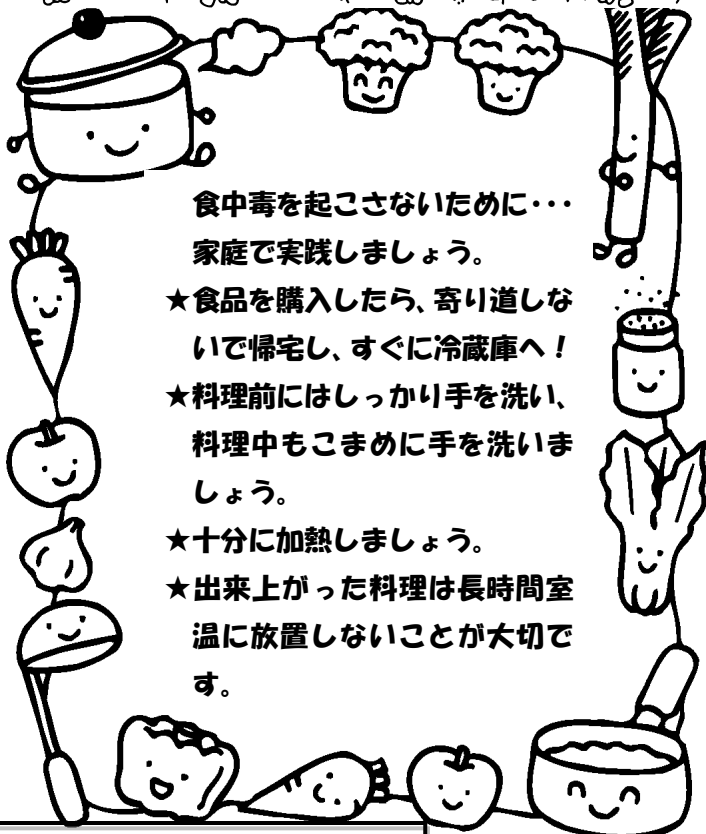 食中毒を起こさないために・・・
家庭で実践しましょう。
★食品を購入したら、寄り道しな
いで帰宅し、すぐに冷蔵庫へ！
★料理前にはしっかり手を洗い、
料理中もこまめに手を洗いま
しょう。
★十分に加熱しましょう。
★出来上がった料理は長時間室
温に放置しないことが大切で
す。